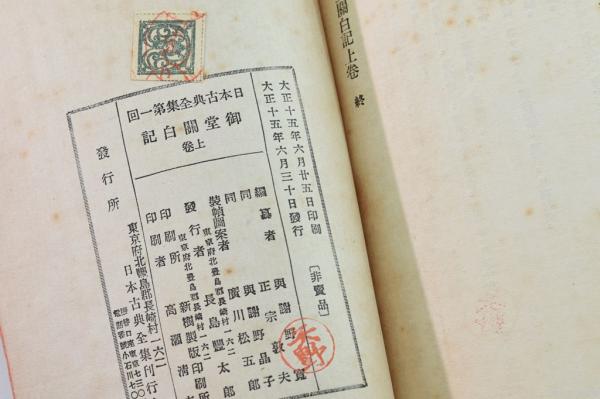 關白記上卷 終
日本古典全集第一回
御堂關白記
上卷
大正十五年六月廿五日印刷
大正十五年六月三十日發行
[非賣品]
編纂者 與謝野 寬
同 正宗敦夫
同 與謝野晶子
裝幀圖案者 廣川松五郎
東京府北豐島郡長崎村一六二
發行者 長島豐太郎
東京府北豐島郡長崎村一六二
印刷所 新樹製版印刷所
印刷者 高瀨清
發行所
東京府北豐島郡長崎村一六二
日本古典全集刊行